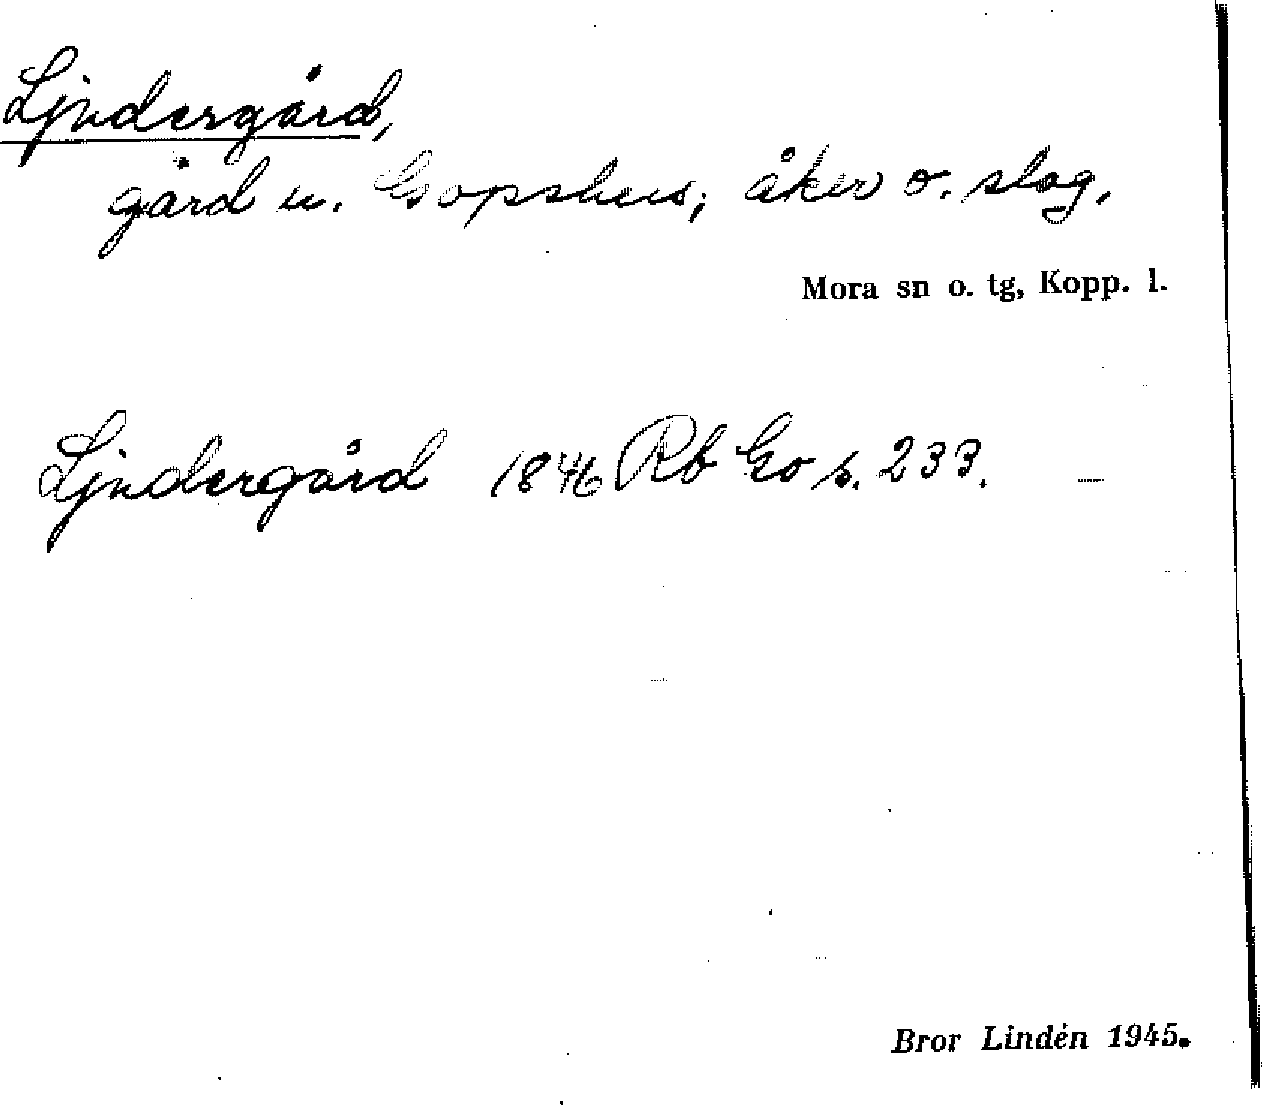 Ljudergård,
gård u. Gopshus; åker o. slog.
Mora sn o. tg, Kopp. l.
Ljudergård 1846 Rb Go s. 233.
Bror Lindén 1945.